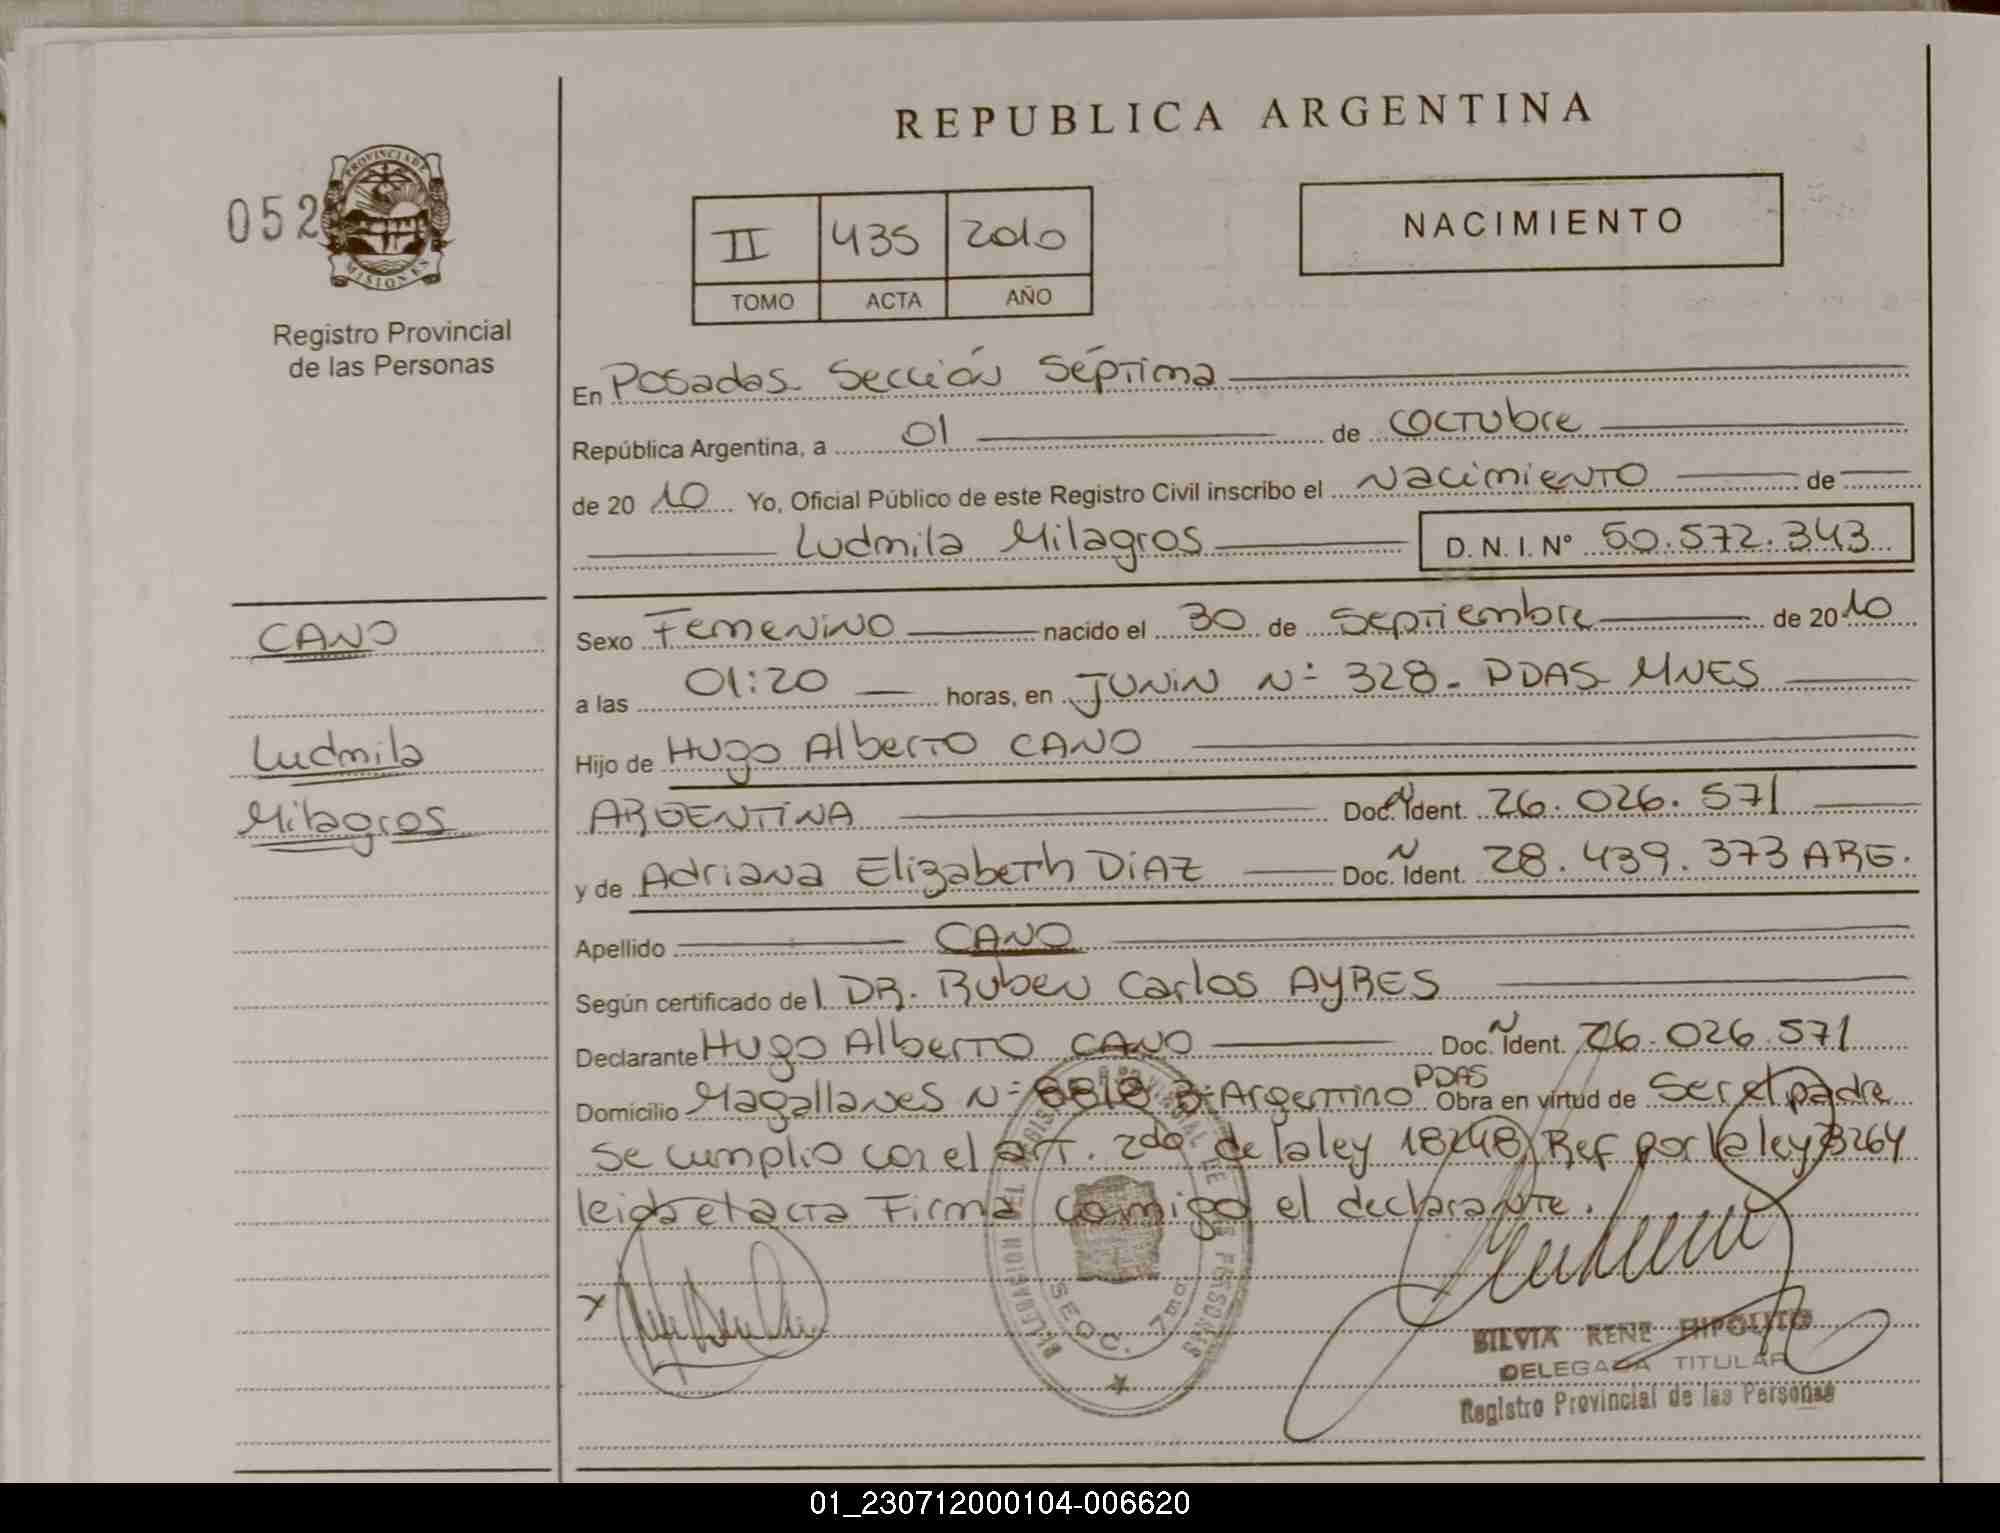 REPUBLICA ARGENTINA
052
PROVINCIA DE
MISIONES
Registro Provincial
de las Personas
II 435 2010
TOMO ACTA AÑO
NACIMIENTO
En Posadas Sección Séptima
República Argentina, a 01 de OCTUbre
de 2010 Yo, Oficial Público de este Registro Civil inscribo el Nacimiento de
Ludmila Milagros D. N. I. Nº 50.572.343
CANO
Ludmila
Milagros
Sexo Femenino nacido el 30 de Septiembre de 2010
a las 01:20 horas, en JUNIN Nº 328. PDAS MNES
Hijo de Hugo Alberto CANO
ARGENTINA Doc. Ident. 26.026.571
y de Adriana Elizabeth DIAZ Doc. Ident. 28.439.373 ARG.
Apellido CANO
Según certificado del DR. Ruben Carlos AYRES
Declarante Hugo Alberto CANO Doc. Ident. 26.026.571
Domicilio Magallanes Nº 8818 Bº Argentino PDAS Obra en virtud de Ser el padre
Se cumplio con el art. 2do de la ley 18248 Ref por la ley 23264
leida el acta Firma conmigo el declarante.
DELEGACION DEL REGISTRO PROVINCIAL DE LAS PERSONAS
SECC. 7ma
SILVIA RENE HIPOLITO
DELEGADA TITULAR
Registro Provincial de las Personas
01_230712000104-006620